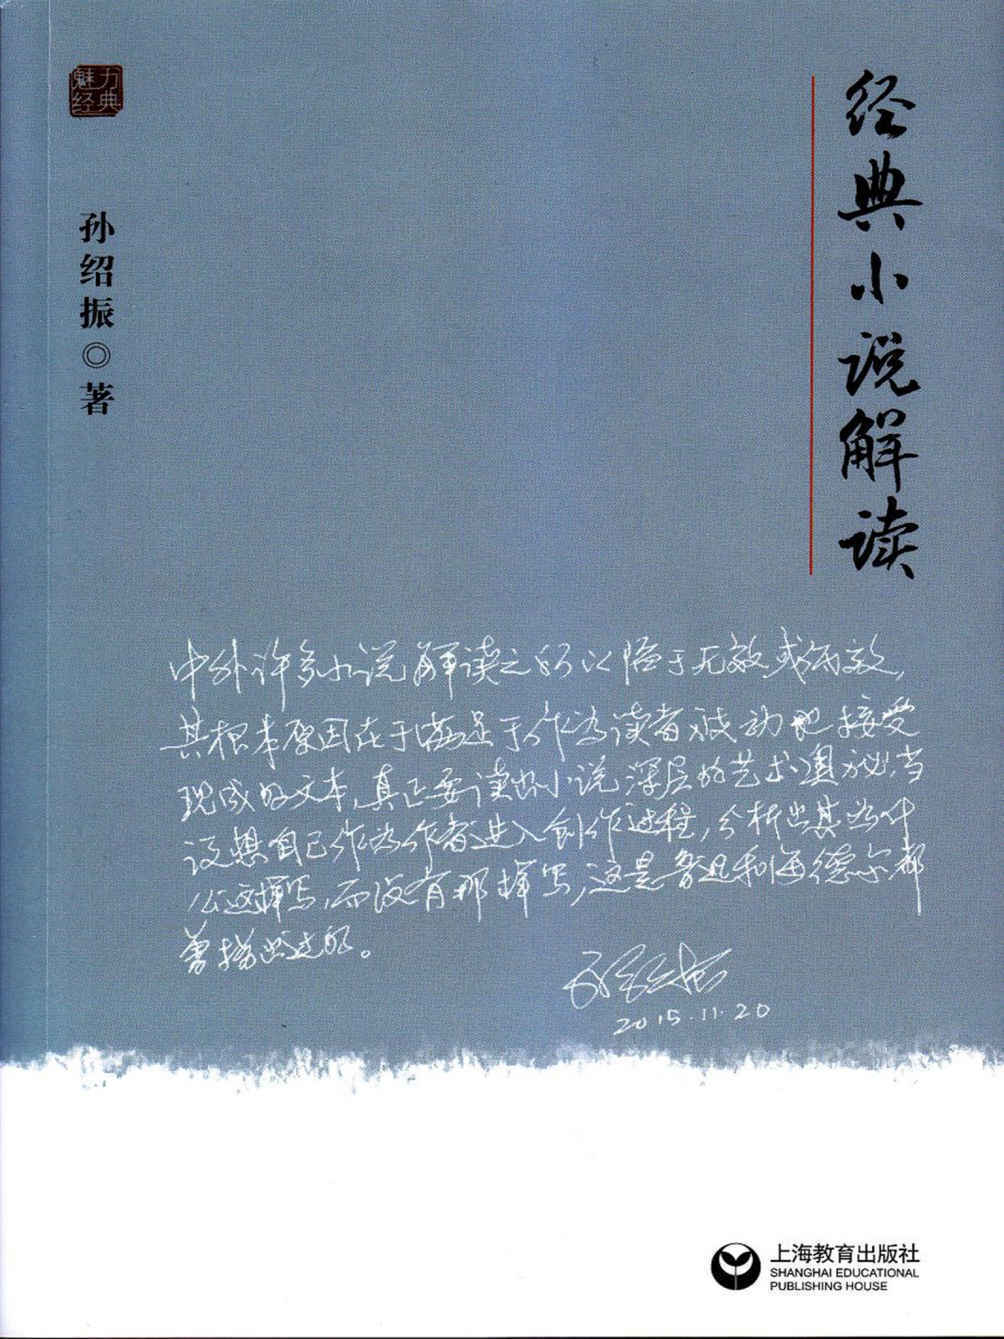 魅力
经典
孙绍振◎著
经典小说解读
中外许多小说解读之所以陷于无效或低效,
其根本原因在于满足于作为读者被动地接受
现成的文本,真正要读出小说深层的艺术奥秘,当
设想自己作为作者进入创作过程,分析出其为什
么这样写,而没有那样写,这是鲁迅和海德尔都
曾指出过的。
孙绍振
2015.11.20
上海教育出版社
SHANGHAI EDUCATIONAL
PUBLISHING HOUSE